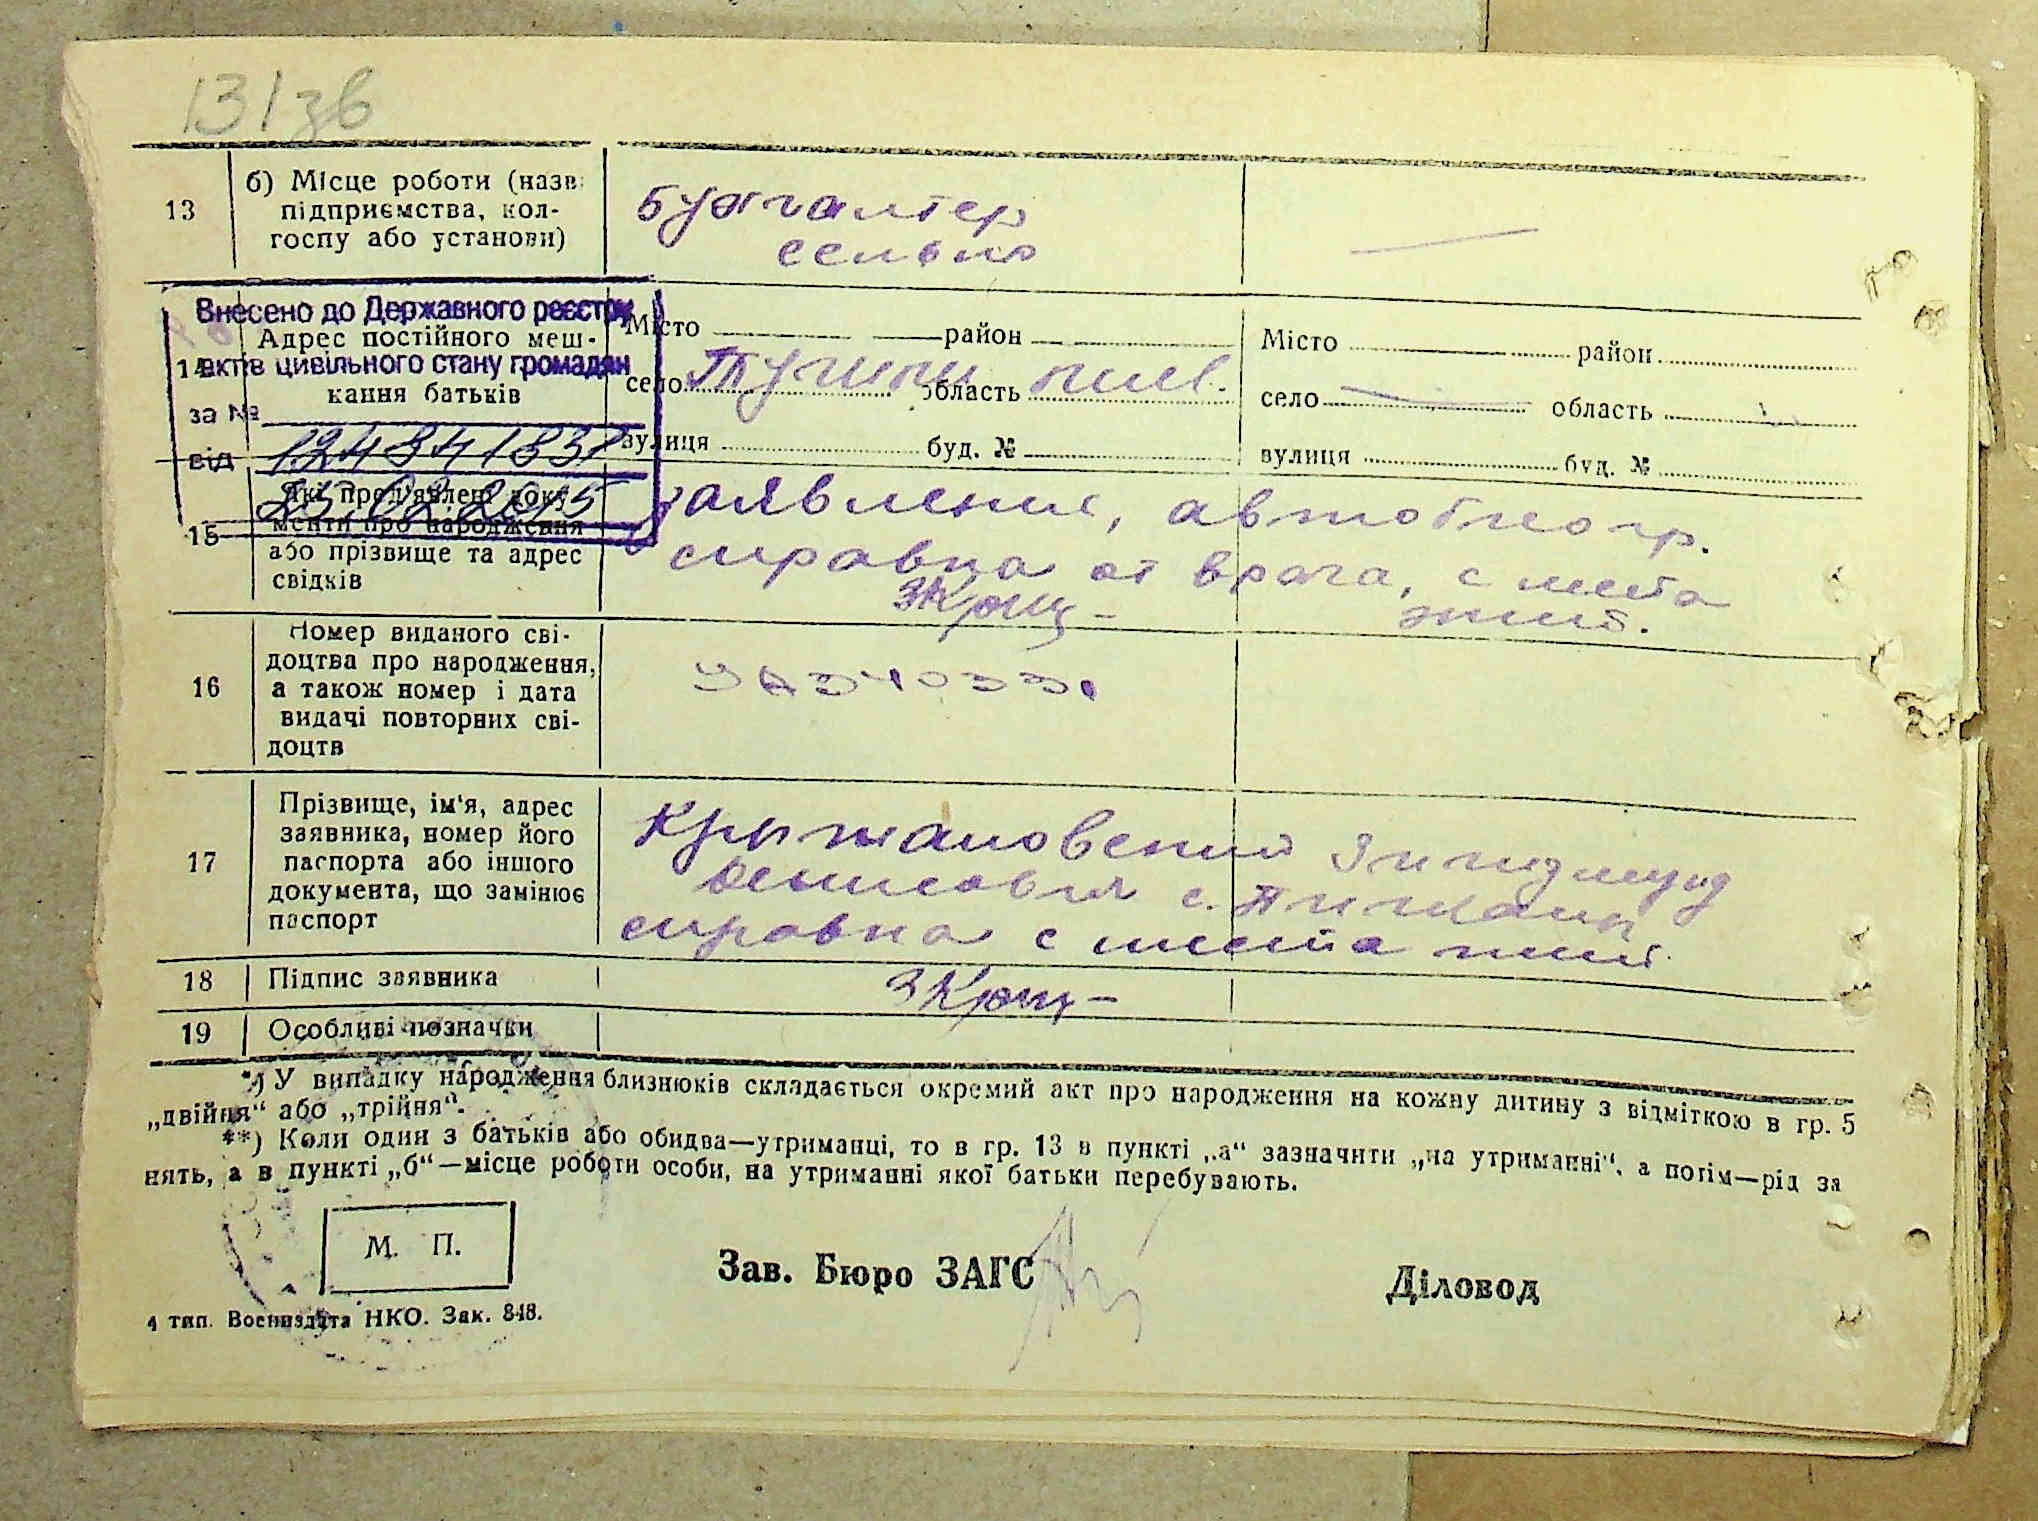 131зв
13
б) Місце роботи (назв
підприємства, кол-
госпу або установи)
бухгалтер
сельпо
Внесено до Державного реєстру
актів цивільного стану громадян
за №
від 124841831
25.02.2015
14
Адрес постійного меш-
кання батьків
Місто район
село область
вулиця буд. №
Місто район
село область
вулиця буд. №
15
Які пред'явлені доку-
менти про народження
або прізвище та адрес
свідків
заявление, автобиогр.
справка от врача, с места
жит.
ЗКрыж-
16
Номер виданого сві-
доцтва про народження,
а також номер і дата
видачі повторних сві-
доцтв
17
Прізвище, ім'я, адрес
заявника, номер його
паспорта або іншого
документа, що замінює
паспорт
Крыжановский Зигидмунд
Денисович с.
справка с места жит.
18
Підпис заявника
ЗКрыж-
19
Особливі позначки
*) У випадку народження близнюків складається окремий акт про народження на кожну дитину з відміткою в гр. 5
„двійня“ або „трійня“.
**) Коли один з батьків або обидва—утриманці, то в гр. 13 в пункті „а“ зазначити „на утриманні“, а потім—рід за
нять, а в пункті „б“—місце роботи особи, на утриманні якої батьки перебувають.
М. П.
Зав. Бюро ЗАГС
Діловод
4 тип. Воениздата НКО. Зак. 848.